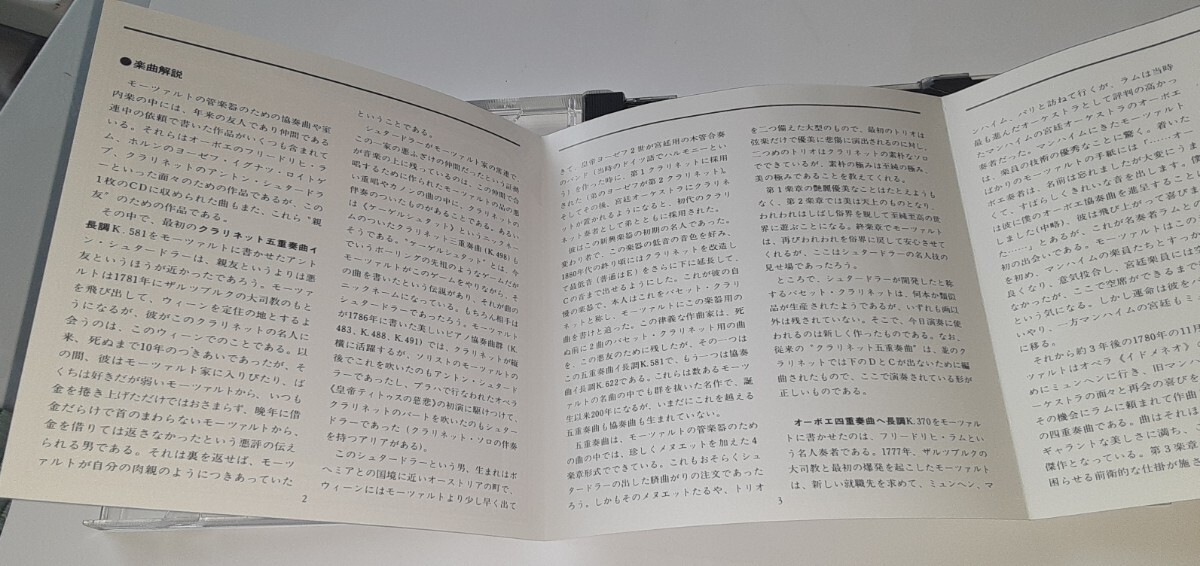 ●楽曲解説
モーツァルトの管楽器のための協奏曲や室
内楽の中には、年来の友人であり仲間である
連中の依頼で書いた作品がいくつも含まれて
いる。それらはオーボエのフリードリヒ・ラ
ム、ホルンのヨーゼフ・イグナツ・ロイトゲ
ブ、クラリネットのアントン・シュタードラ
ーといった面々のための作品であるが、この
1枚のCDに収められた曲もまた、これら“親
友”のための作品である。
その中で、最初のクラリネット五重奏曲イ
長調K. 581をモーツァルトに書かせたアント
ン・シュタードラーは、親友というよりは悪
友というほうが近かったであろう。モーツァ
ルトは1781年にザルツブルクの大司教のもと
を飛び出して、ウィーンを定住の地とするよ
うになるが、彼がこのクラリネットの名人に
会うのは、このウィーンでのことである。以
来、死ぬまで10年のつきあいであったが、そ
の間、彼はモーツァルト家に入りびたり、ば
くちは好きだが弱いモーツァルトから、いつも
金を捲き上げただけではおさまらず、晩年に借
金だらけで首のまわらないモーツァルトから、
金を借りては返さなかったという悪評の伝え
られる男である。それは裏を返せば、モーツ
ァルトが自分の肉親のようにつきあっていた
2
ということである。
シュタードラーがモーツァルト家の常連で
この一家の悪ふざけの仲間だったという証拠
が音楽の上に残っているのは、この仲間で合
唱するために作られたモーツァルトの品の悪
い重唱やカノンの曲の中に、クラリネットの
伴奏がついたものがあることである。あるい
は《ケーゲルシュタット》というニックネー
ムのついたクラリネット三重奏曲(K.498)も
そうである。“ケーゲルシュタット”とは、今
でいうボーリングの先祖のようなゲームだが
モーツァルトがこのゲームをやりながら、そ
の曲を書いたという伝説があり、それが曲の
ニックネームになっている。もちろん相手は
シュタードラーであったろう。モーツァルト
が1786年に書いた美しいピアノ協奏曲群(K.
483、K. 488、K. 491)では、クラリネットが縦
横に活躍するが、ソリストのモーツァルトの
後でこれを吹いたのもアントン・シュタード
ラーであったし、プラハで行なわれたオペラ
《皇帝ティトゥスの慈悲》の初演に駆けつけて、
クラリネットのパートを吹いたのもシュター
ドラーであった(クラリネット・ソロの伴奏
を持つアリアがある)。
このシュタードラーという男、生まれはボ
ヘミアとの国境に近いオーストリアの町で、
ウィーンにはモーツァルトより少し早く出て
きて、皇帝ヨーゼフ2世が宮廷用の木管合奏
のバンド(当時のドイツ語でハルモニーとい
う)を作った時に、第1クラリネットに採用
された(弟のヨーゼフが第2クラリネット)。
そしてその後、宮廷オーケストラにクラリネ
ットが置かれるようになると、初代のクラリ
ネット奏者として弟とともに採用された。
彼はこの新興楽器の初期の名人であったが
変わり者で、この楽器の低音の音色を好み、
1880年代の終り頃にはクラリネットを改造し
て最低音(普通はE)をさらに下に延長して、
Cの音まで出せるようにした。これが彼の自
慢の楽器で、本人はこれをバセット・クラリ
ネットと称し、モーツァルトにこの楽器用の
曲を書けと迫った。この律義な作曲家は、死
ぬ前に2曲のバセット・クラリネット用の曲
を、この悪友のために残したが、その一つは
この五重奏曲イ長調K.581で、もう一つは協奏
曲イ長調K.622である。これらは数あるモーツ
ァルトの名曲の中でも群を抜いた名作で、誕
生以来200年になるが、いまだにこれを越える
五重奏曲も協奏曲も生まれていない。
五重奏曲は、モーツァルトの管楽器のため
の曲の中では、珍しくメヌエットを加えた4
楽章形式でできている。これもおそらくシュ
タードラーの出した臍曲がりの注文であった
ろう。しかもそのメヌエットたるや、トリオ
3
を二つ備えた大型のもので、最初のトリオは
弦楽だけで優美に悲傷に演出されるのに対し
二つめのトリオはクラリネットの素朴なソロ
でできているが、素朴の極みは至純の極み、
美の極みであることを教えてくれる。
第1楽章の艶麗優美なことはたとえよう
もなく、第2楽章では美は天上のものとなり、
われわれはしばし俗界を観して至純至高の世
界に遊ぶことになる。終楽章でモーツァルト
は、再びわれわれを俗界に戻して安心させて
くれるが、ここはシュタードラーの名人技の
見せ場であったろう。
ところで、シュタードラーが開発したと称
するバセット・クラリネットは、何本か類似
品が生産されたようであるが、いずれも両以
外は残されていない。そこで、今日演奏に使
われるのは新しく作ったものである。なお、
従来の“クラリネット五重奏曲”は、並のク
ラリネットでは下のDとCが出ないために編
曲されたもので、ここで演奏されている形が
正しいものである。
オーボエ四重奏曲ヘ長調K.370をモーツァル
トに書かせたのは、フリードリヒ・ラムとい
う名人奏者である。1777年、ザルツブルクの
大司教と最初の爆発を起こしたモーツァルト
は、新しい就職先を求めて、ミュンヘン、マ
ンハイム、パリと訪ねて行くが、ラムは当時
最も進んだオーケストラとして評判の高かっ
たマンハイムの宮廷オーケストラのオーボエ
奏者だった。マンハイムにきたモーツァルト
は、楽員の技術の優秀なことに驚く。着いた
ばかりのモーツァルトの手紙には「……オー
ボエ奏者は、名前は忘れましたが大変にうま
くて、すばらしくきれいな音を出します。
は彼に僕のオーボエ協奏曲を進呈することに
しました(中略)。彼は飛び上がって喜びま
…」とあるが、これが名奏者ラムとの
初の出会いである。モーツァルトはこの
を初め、マンハイムの楽員たちとすっか
良くなり、意気投合し、宮廷楽員には
なかったが、ここで空席ができるまで
という気になる。しかし運命は彼を
いやり、一方マンハイムの宮廷もミ
に移る。
それから約3年後の1780年の11月
ァルトはオペラ《イドメネオ》の
めにミュンヘンに行き、旧マン
ーケストラの面々と再会の喜びを
その機会にラムに頼まれて作曲
の四重奏曲である。曲はそれは
ギャラントな美しさに満ち、
傑作となっている。第3楽章
困らせる前衛的な仕掛が施さ